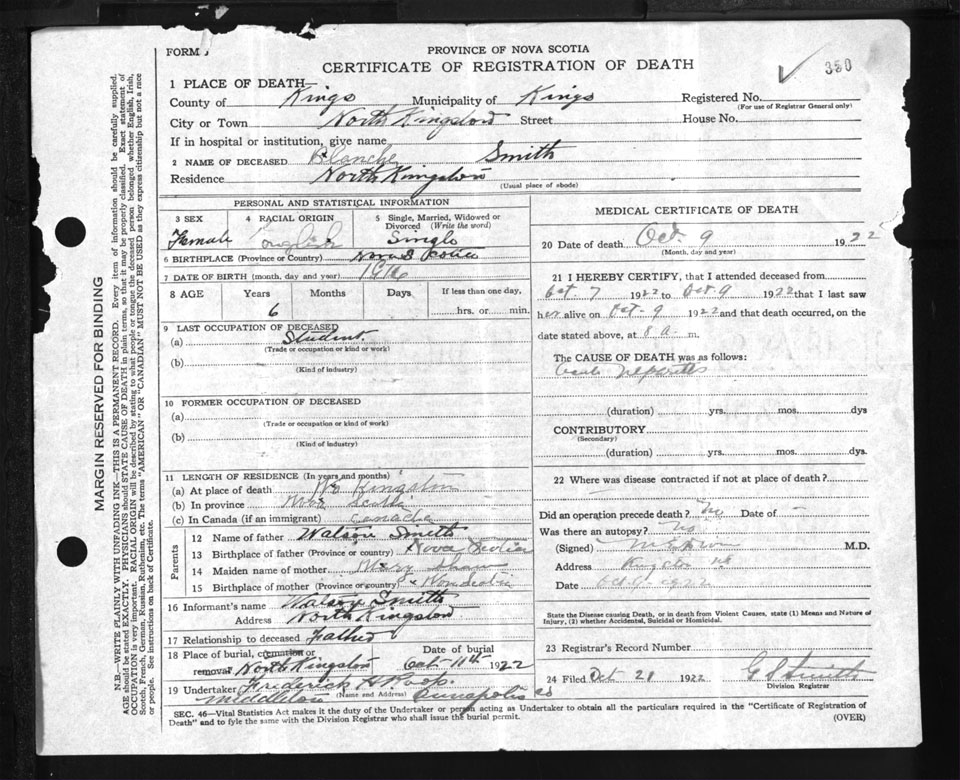 FORM
PROVINCE OF NOVA SCOTIA
CERTIFICATE OF REGISTRATION OF DEATH
✓ 380
1 PLACE OF DEATH—
County of Kings Municipality of Kings Registered No.
(For use of Registrar General only)
City or Town North Kingston Street House No.
If in hospital or institution, give name
2 NAME OF DECEASED Blanche Smith
Residence North Kingston
(Usual place of abode)
PERSONAL AND STATISTICAL INFORMATION
3 SEX Female
4 RACIAL ORIGIN English
5 Single, Married, Widowed or Divorced (Write the word) Single
6 BIRTHPLACE (Province or Country) Nova Scotia
7 DATE OF BIRTH (month, day and year) 1916
8 AGE Years Months Days If less than one day,
6 hrs. or min.
9 LAST OCCUPATION OF DECEASED
(a) Student
(Trade or occupation or kind or work)
(b)
(Kind of industry)
10 FORMER OCCUPATION OF DECEASED
(a)
(Trade or occupation or kind of work)
(b)
(Kind of industry)
11 LENGTH OF RESIDENCE (In years and months)
(a) At place of death No Kingston
(b) In province Nova Scotia
(c) In Canada (if an immigrant) Canada
Parents
12 Name of father Watson Smith
13 Birthplace of father (Province or country) Nova Scotia
14 Maiden name of mother Mary Shaw
15 Birthplace of mother (Province or country)
16 Informant's name Watson Smith
Address North Kingston
17 Relationship to deceased Father
18 Place of burial, cremation or removal North Kingston
Date of burial Oct 11th 1922
19 Undertaker Frederick H Roop.
(Name and Address)
Middleton Annapolis Co
MEDICAL CERTIFICATE OF DEATH
20 Date of death Oct. 9 1922
(Month, day and year)
21 I HEREBY CERTIFY, that I attended deceased from
Oct. 7 1922 to Oct. 9 1922 that I last saw
her alive on Oct. 9 1922 and that death occurred, on the
date stated above, at 8 a. m.
The CAUSE OF DEATH was as follows:
Acute Nephritis
(duration) yrs. mos. dys
CONTRIBUTORY
(Secondary)
(duration) yrs. mos. dys.
22 Where was disease contracted if not at place of death?
Did an operation precede death? No Date of –
Was there an autopsy? No
(Signed) M.D.
Address Kingston NS
Date Oct. 9. 1922
State the Disease causing Death, or in death from Violent Causes, state (1) Means and Nature of
Injury, (2) whether Accidental, Suicidal or Homicidal.
23 Registrar's Record Number
24 Filed Oct 21 1922 G S Smith
Division Registrar
SEC. 46—Vital Statistics Act makes it the duty of the Undertaker or person acting as Undertaker to obtain all the particulars required in the "Certificate of Registration of
Death" and to fyle the same with the Division Registrar who shall issue the burial permit.
(OVER)
MARGIN RESERVED FOR BINDING
N.B.—WRITE PLAINLY WITH UNFADING INK—THIS IS A PERMANENT RECORD. Every item of information should be carefully supplied.
AGE should be stated EXACTLY. PHYSICIANS should STATE CAUSE OF DEATH in plain terms, so that it may be properly classified. Exact statement of
OCCUPATION is very important. RACIAL ORIGIN will be described by stating to what people or tongue the deceased person belonged whether English, Irish,
Scotch, French, German, Russian, Ruthenian, etc. The terms "AMERICAN" OR "CANADIAN" MUST NOT BE USED as they express citizenship but not a race
or people. See instructions on back of Certificate.